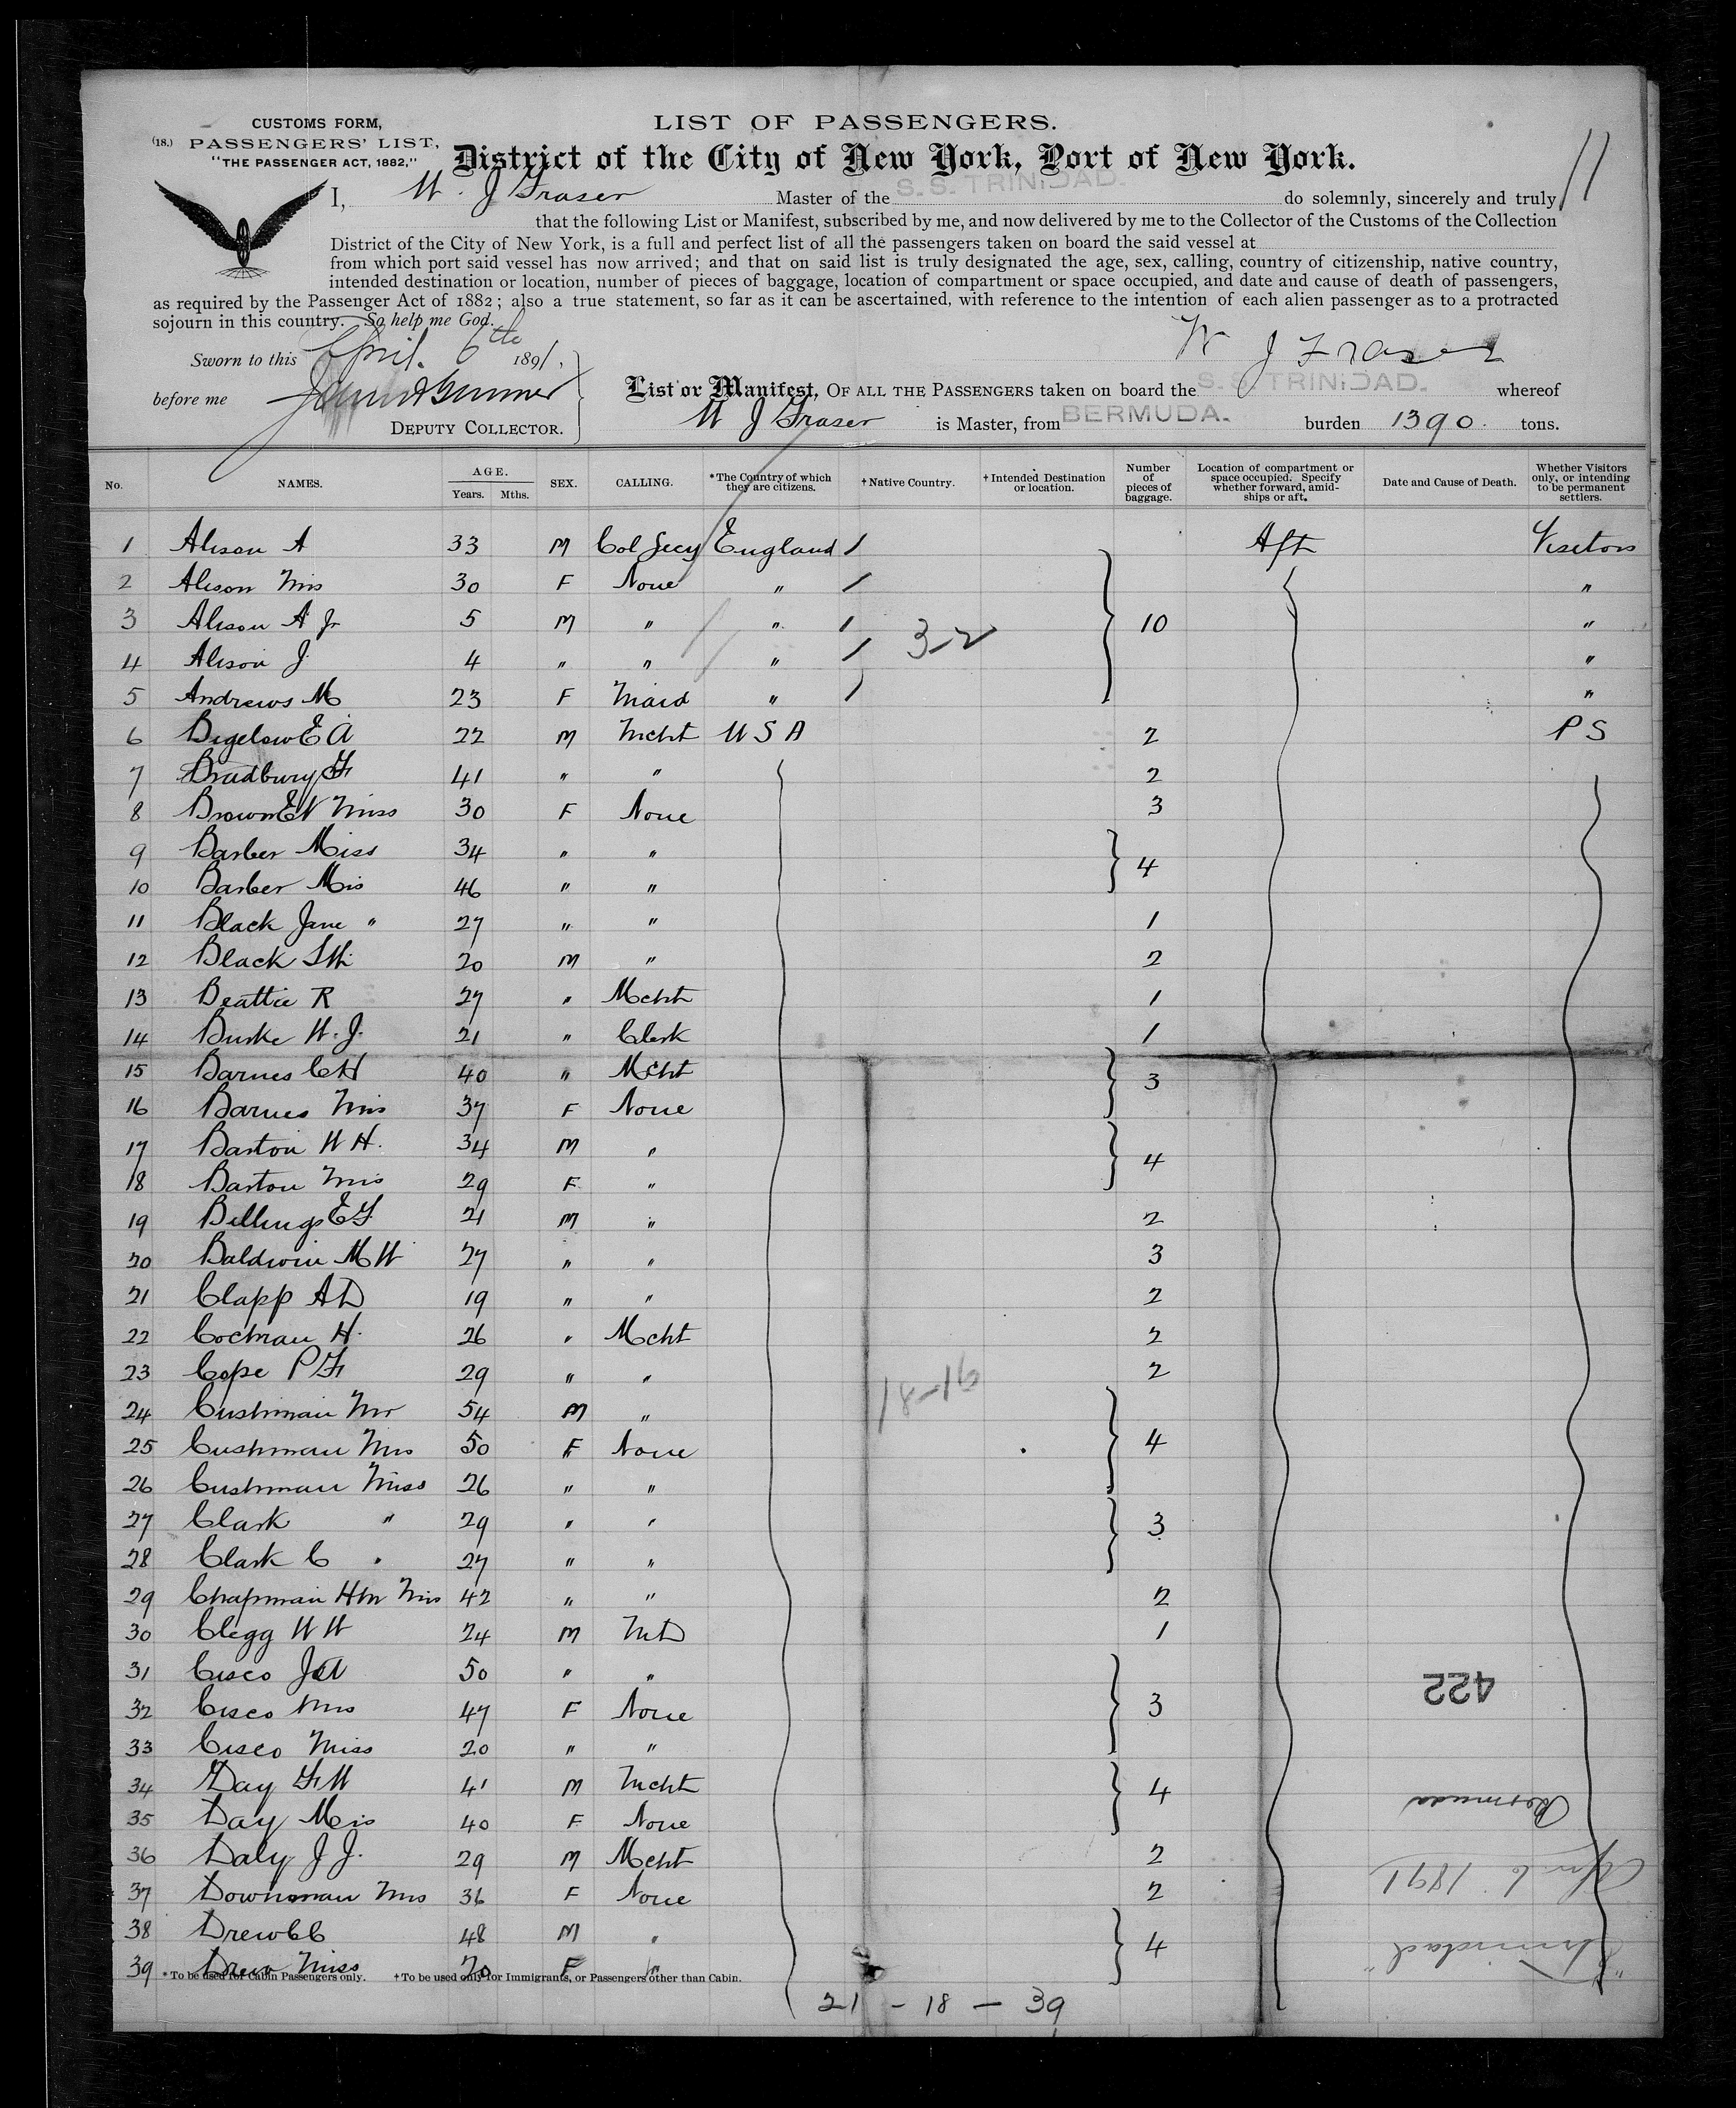 CUSTOMS FORM,
(18.) PASSENGERS' LIST,
"THE PASSENGER ACT, 1882,"
LIST OF PASSENGERS.
District of the City of New York, Port of New York.
11
I, W. J Fraser Master of the S. S. TRINIDAD. do solemnly, sincerely and truly
that the following List or Manifest, subscribed by me, and now delivered by me to the Collector of the Customs of the Collection
District of the City of New York, is a full and perfect list of all the passengers taken on board the said vessel at
from which port said vessel has now arrived; and that on said list is truly designated the age, sex, calling, country of citizenship, native country,
intended destination or location, number of pieces of baggage, location of compartment or space occupied, and date and cause of death of passengers,
as required by the Passenger Act of 1882; also a true statement, so far as it can be ascertained, with reference to the intention of each alien passenger as to a protracted
sojourn in this country. So help me God.
Sworn to this April. 6th 1891,
W J Fraser
before me
DEPUTY COLLECTOR.
List or Manifest, OF ALL THE PASSENGERS taken on board the S. S. TRINIDAD. whereof
W J Fraser is Master, from BERMUDA. burden 1390. tons.
No. NAMES. AGE. Years. Mths. SEX. CALLING. *The Country of which they are citizens. †Native Country. †Intended Destination or location. Number of pieces of baggage. Location of compartment or space occupied. Specify whether forward, amidships or aft. Date and Cause of Death. Whether Visitors only, or intending to be permanent settlers.
1 Alison A 33 M Col Secy England / Aft Visitors
2 Alison Mrs 30 F None " / "
3 Alison A Jr 5 M " " / 3-2 10 "
4 Alison J. 4 " " " / "
5 Andrews M 23 F Maid " / "
6 Bigelow E A 22 M Mcht U S A 2 P S
7 Bradbury F 41 " " 2
8 Brown EN Miss 30 F None 3
9 Barber Miss 34 " "
10 Barber Mrs 46 " " 4
11 Black Jane " 27 " " 1
12 Black S W. 20 M " 2
13 Beattie R 27 " Mcht 1
14 Burke W. J. 21 " Clerk 1
15 Barnes C H 40 " Mcht 3
16 Barnes Mrs 37 F None
17 Barton W H. 34 M " 4
18 Barton Mrs 29 F "
19 Billings E F 21 M " 2
20 Baldwin M W 27 " " 3
21 Clapp A D 19 " " 2
22 Cochran H. 26 " Mcht 2
23 Cope P F 29 " " 18-16 2
24 Cushman Mr 54 M "
25 Cushman Mrs 50 F None 4
26 Cushman Miss 26 " "
27 Clark " 29 " " 3
28 Clark C " 27 " "
29 Chapman H M Mrs 42 " " 2
30 Clegg W W 24 M M D 1
31 Cisco J A 50 " "
32 Cisco Mrs 47 F None 3
33 Cisco Miss 20 " "
34 Day F W 41 M Mcht 4
35 Day Mrs 40 F None
36 Daly J J. 29 M Mcht 2
37 Downsman Mrs 36 F None 2
38 Drew C C 48 M " 4
39 Drew Miss 20 F "
422
Bermuda
Apr 6. 1891
"Trinidad"
*To be used for Cabin Passengers only. †To be used only for Immigrants, or Passengers other than Cabin.
21 - 18 - 39